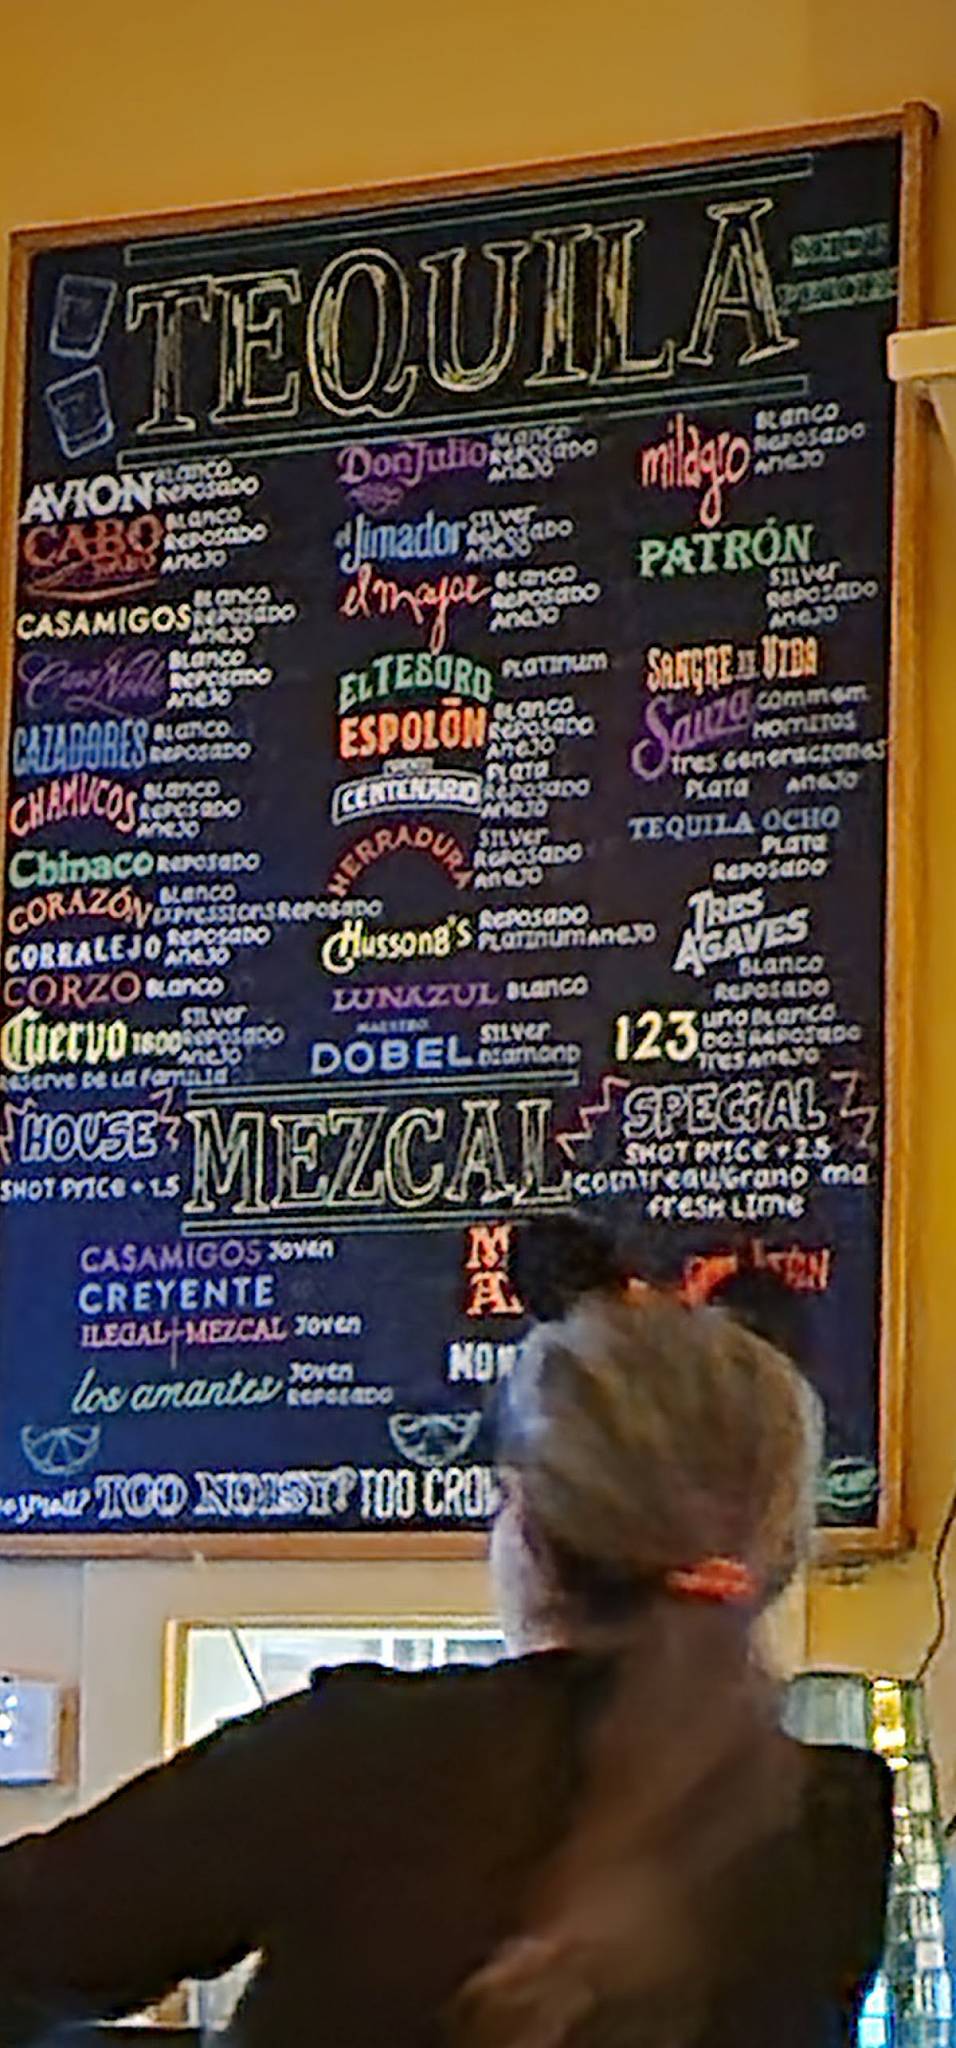 TEQUILA
AVION BLANCO REPOSADO
CABO WABO BLANCO REPOSADO ANEJO
CASAMIGOS BLANCO REPOSADO ANEJO
BLANCO REPOSADO ANEJO
CAZADORES BLANCO REPOSADO
CHAMUCOS BLANCO REPOSADO ANEJO
Chinaco REPOSADO
CORAZÓN BLANCO EXPRESSIONS REPOSADO
CORRALEJO REPOSADO ANEJO
CORZO BLANCO
Cuervo 1800 SILVER REPOSADO ANEJO
RESERVE DE LA FAMILIA
Don Julio BLANCO REPOSADO ANEJO
el Jimador SILVER REPOSADO ANEJO
el mayor BLANCO REPOSADO ANEJO
EL TESORO PLATINUM
ESPOLÓN BLANCO REPOSADO ANEJO
CENTENARIO PLATA REPOSADO ANEJO
HERRADURA SILVER REPOSADO ANEJO
Hussong's REPOSADO PLATINUM ANEJO
LUNAZUL BLANCO
MAESTRO DOBEL SILVER DIAMOND
milagro BLANCO REPOSADO ANEJO
PATRÓN
SILVER
REPOSADO
ANEJO
SANGRE DE VIDA
Sauza COMMEM
HORNITOS
Tres Generaciones
PLATA ANEJO
TEQUILA OCHO
PLATA
REPOSADO
TRES AGAVES
BLANCO
REPOSADO
123 UNO BLANCO DOS REPOSADO TRES ANEJO
HOUSE
SHOT PRICE + 1.5
MEZCAL
SPECIAL
SHOT PRICE + 2.5
COINTREAU/GRAND MA
FRESH LIME
CASAMIGOS JOVEN
CREYENTE
ILEGAL MEZCAL JOVEN
los amantes JOVEN REPOSADO
TOO NOISY? TOO